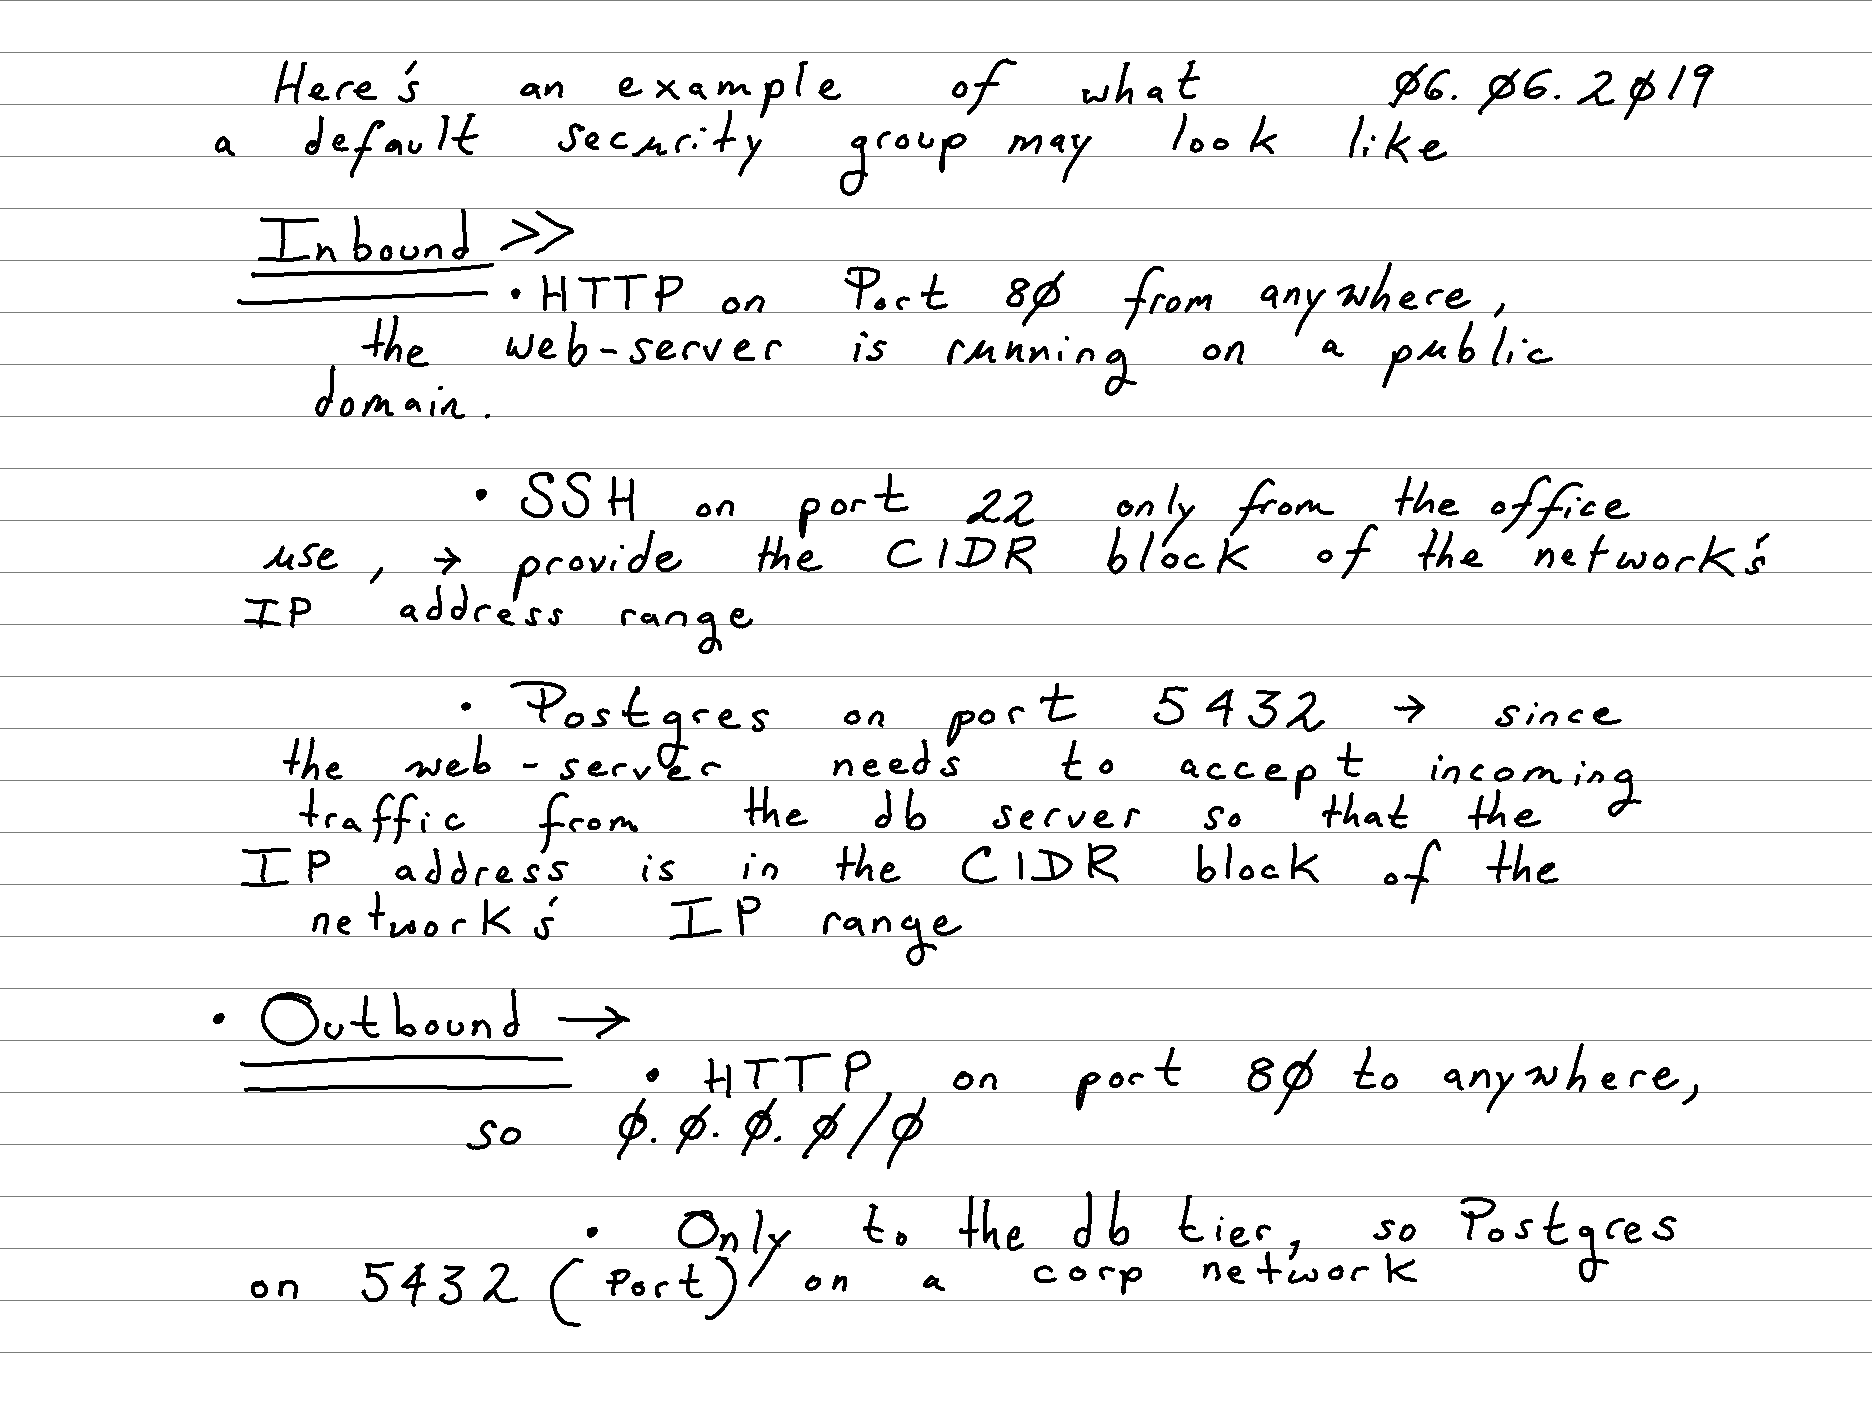 Here's an example of what 06.06.2019
a default security group may look like
Inbound >>
• HTTP on Port 80 from anywhere,
the web-server is running on a public
domain.
• SSH on port 22 only from the office
use, → provide the CIDR block of the network's
IP address range
• Postgres on port 5432 → since
the web-server needs to accept incoming
traffic from the db server so that the
IP address is in the CIDR block of the
network's IP range
• Outbound →
• HTTP on port 80 to anywhere,
so 0.0.0.0/0
• Only to the db tier, so Postgres
on 5432 (Port) on a corp network